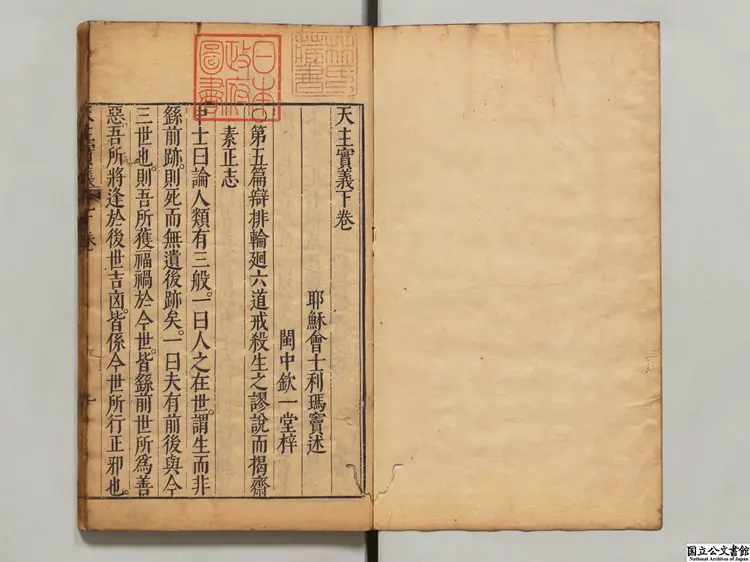 天主實義下卷
耶穌會士利瑪竇述
閩中欽一堂梓
第五篇辯排輪廻六道戒殺生之謬說而揭齋
素正志
中士曰論人類有三般。一曰人之在世。謂生而非
繇前跡。則死而無遺後跡矣。一曰夫有前後與今
三世也。則吾所獲福禍於今世。皆繇前世所為善
惡。吾所將逢於後世吉凶。皆係今世所行正邪也。
天主實義 下卷
日本政府圖書
林氏藏書
国立公文書館
National Archives of Japan